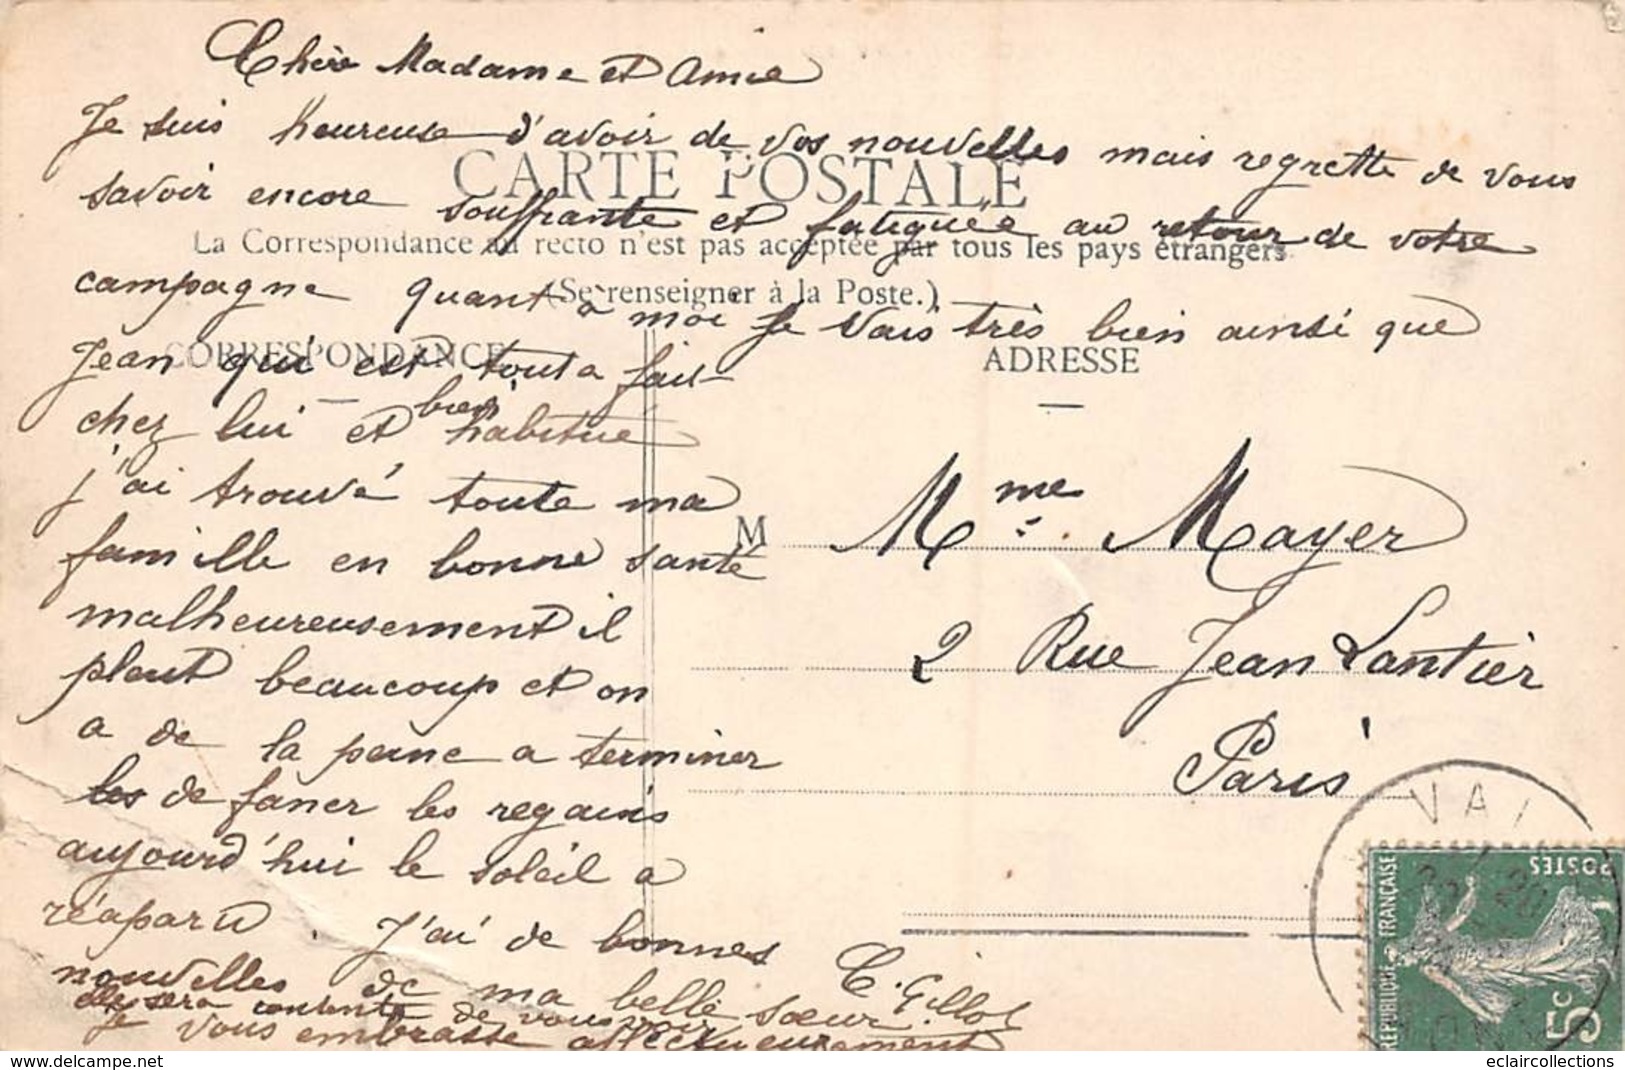 Chère Madame et Amie
Je suis heureuse d'avoir de vos nouvelles mais regrette de vous
CARTE POSTALE
savoir encore souffrante et fatiguée au retour de votre
La Correspondance au recto n'est pas acceptée par tous les pays étrangers
(Se renseigner à la Poste.)
campagne quant a moi je vais très bien ainsi que
CORRESPONDANCE
ADRESSE
Jean qui est tout a fait
chez lui et bien habitué
j'ai trouvé toute ma
famille en bonne santé
malheureusement il
pleut beaucoup et on
a de la peine a terminer
les de faner les regains
aujourd'hui le soleil a
réaparu. J'ai de bonnes
nouvelles de ma belle sœur
elle sera contente de vous voir
Je vous embrasse affectueusement
C. Gillot
M Mme Mayer
2 Rue Jean Lantier
Paris
VAL
POSTES
REPUBLIQUE FRANÇAISE
5c
delcampe.net
eclaircollections